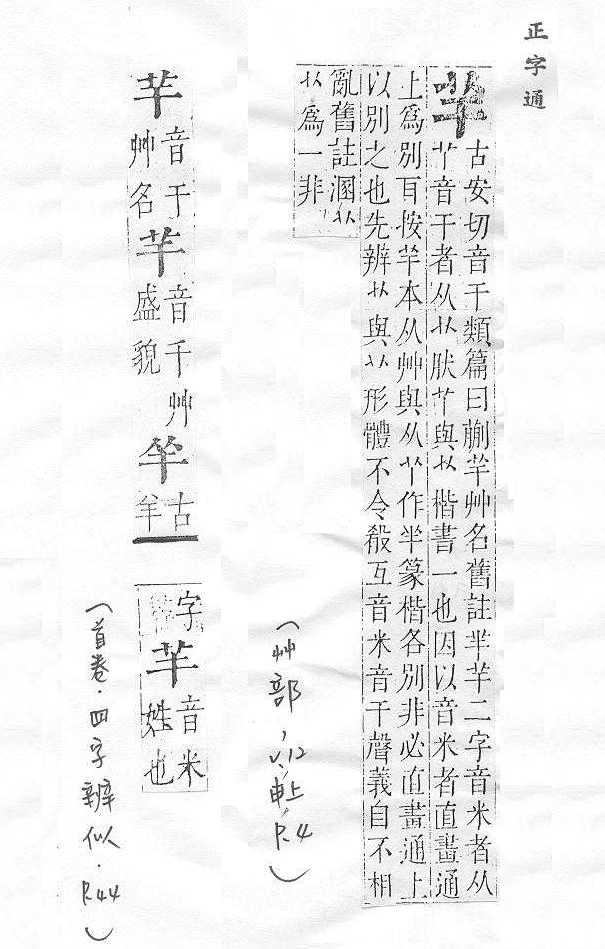 正字通
芉
古安切音干類篇曰蒯芉艸名舊註羋芉二字音米者从
丫音干者从艹肰丫與艹楷書一也因以音米者直畫通
上爲別耳按芉本从艸與从丫作羋篆楷各別非必直畫通上
以別之也先辨艹與丫形體不令殽互音米音干聲義自不相
亂舊註溷艹
丫爲一非
(艸部, V.12, 申上, P.4)
芉
音干
艸名
芊
音千艸
盛貌
羋
古
羊
字
芈
音米
姓也
(首卷.四字辨似.P.44)